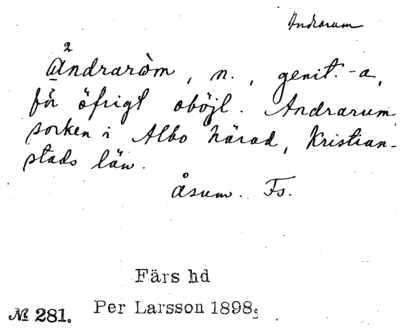 Andrarum
Ändraròm, n., genit. -a,
för öfrigt oböjl. Andrarum
socken i Albo härad, Kristian-
stads län.
Åsum. Fs.
Färs hd
Per Larsson 1898.
№ 281.